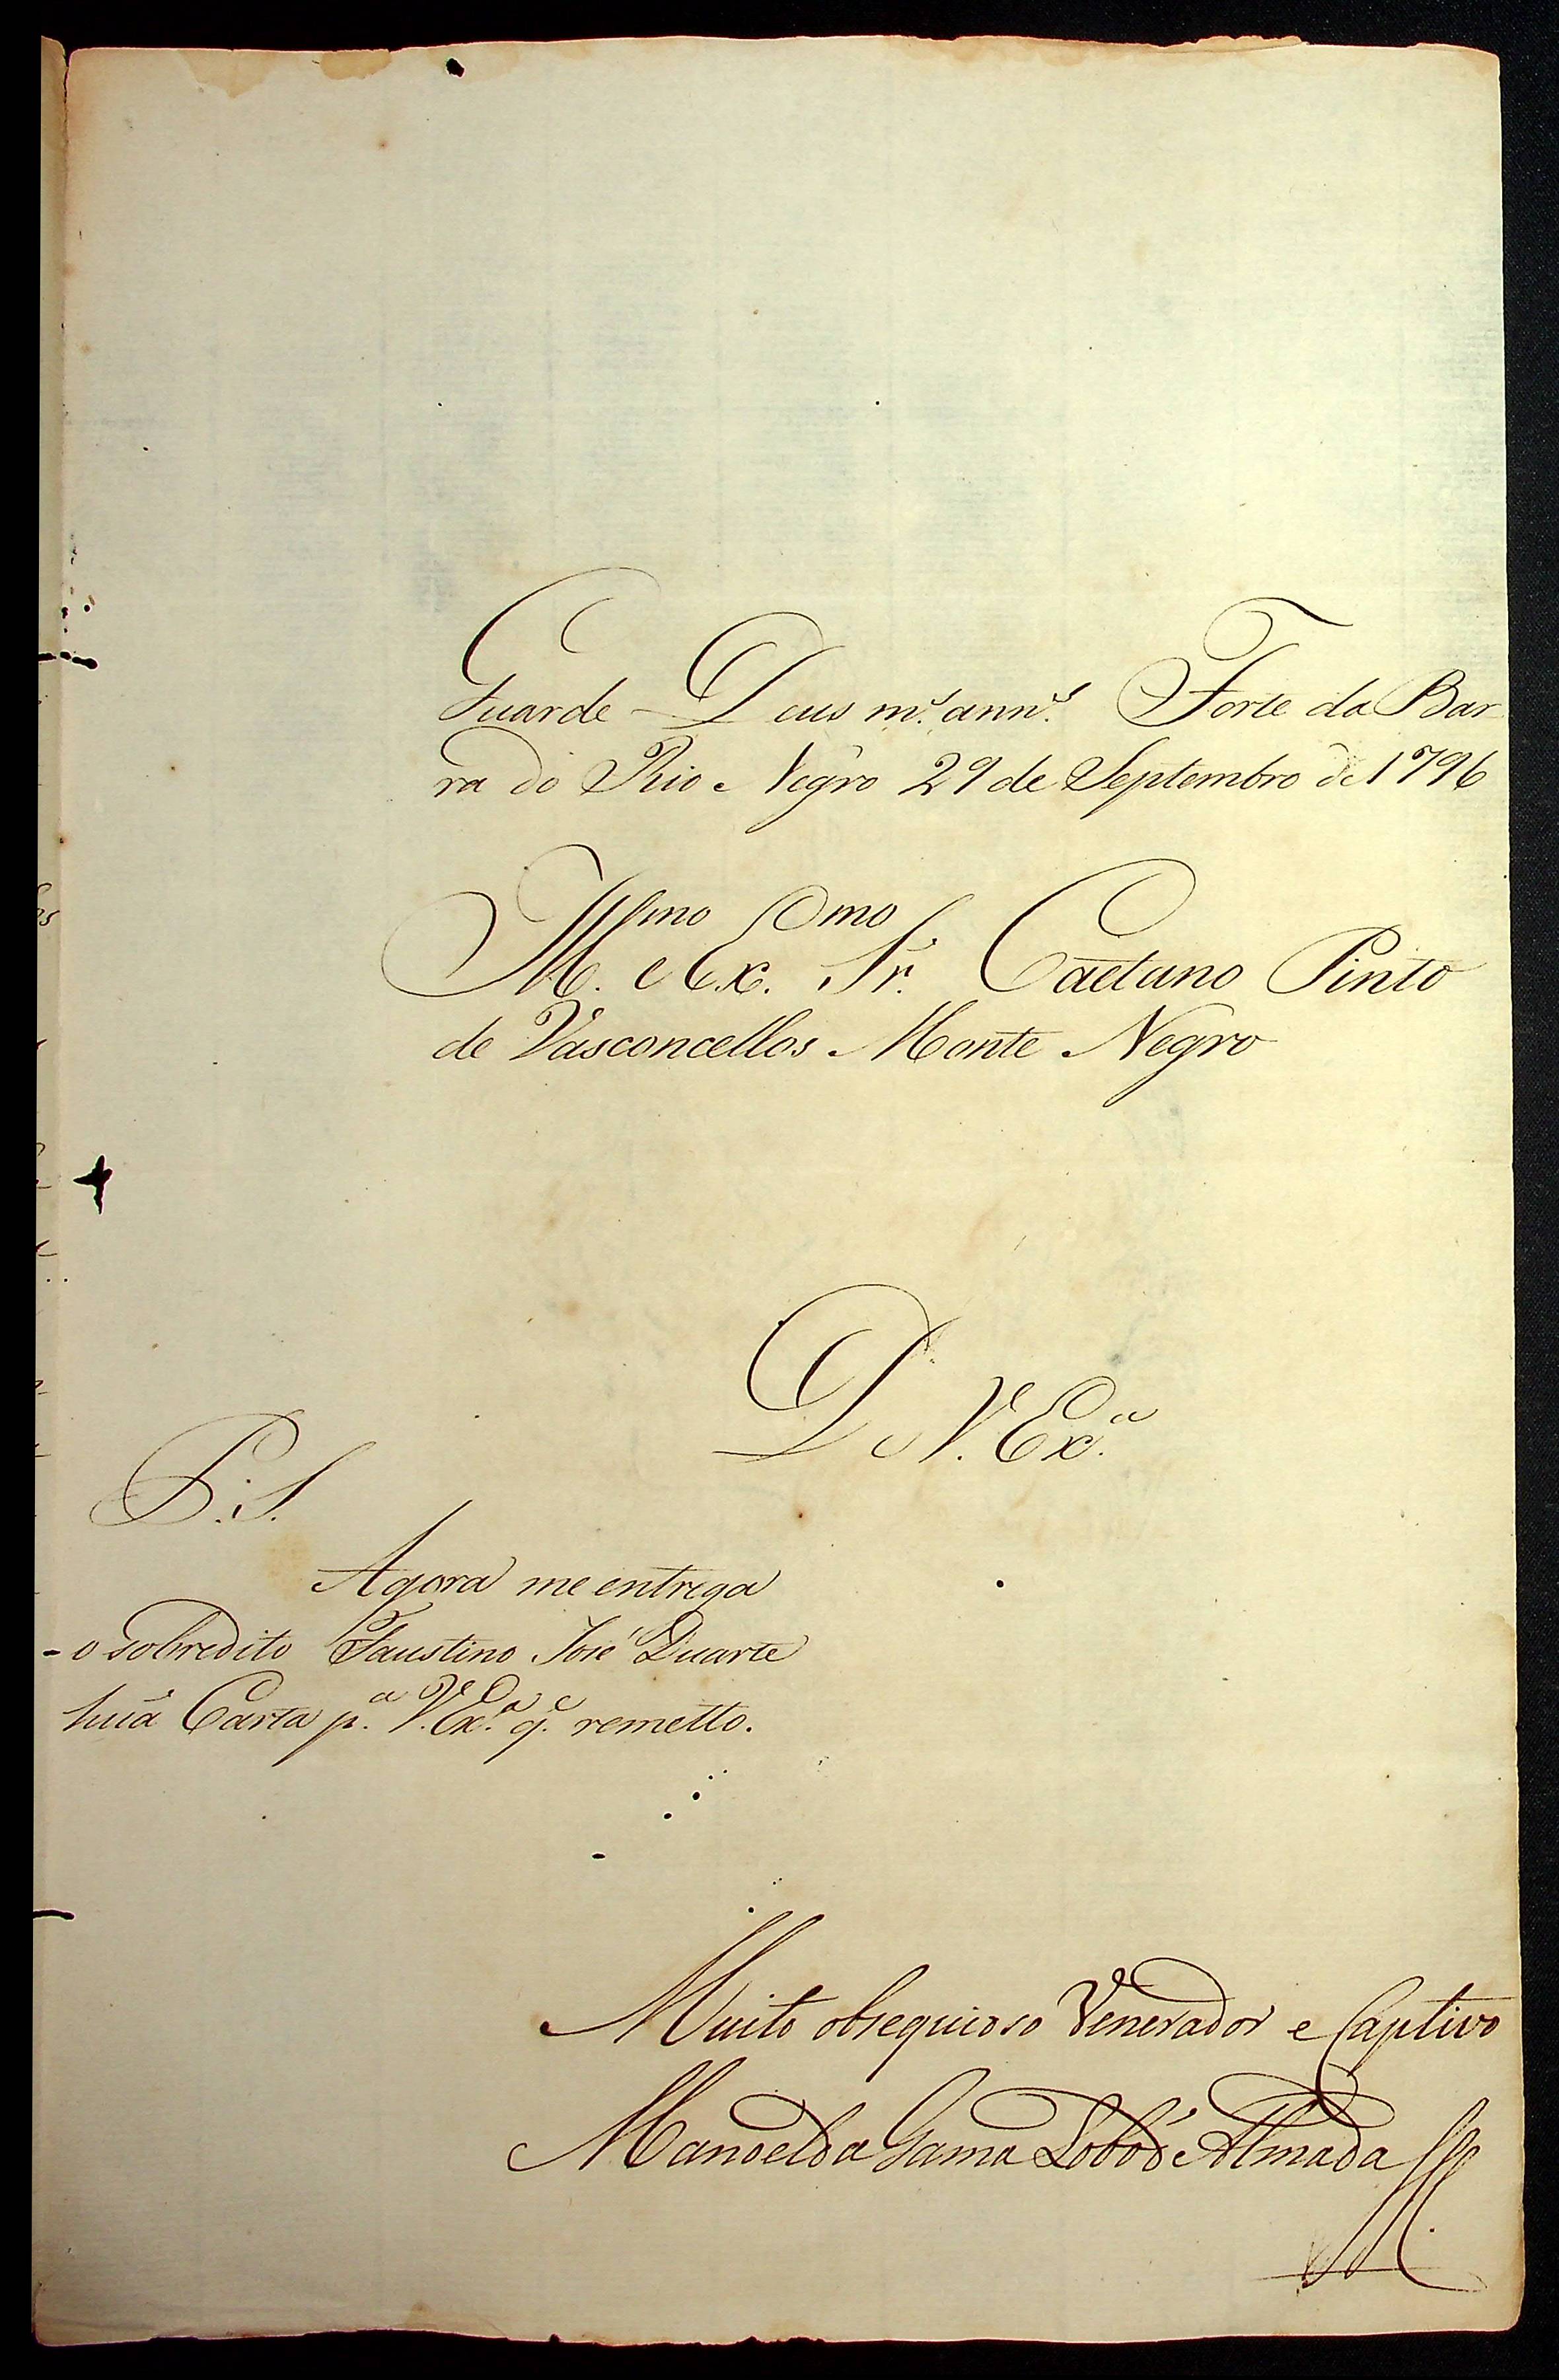 Guarde Deus m.s ann.s Forte da Bar
ra do Rio Negro 29 de Septembro de 1796
Ill.mo e Ex.mo Sr. Caetano Pinto
de Vasconcellos Monte Negro
D V. Ex.a
P. S.
Agora me entrega
o sobredito Faustino José Duarte
huã Carta p.a V. Ex.a q.e remetto.
Muito obsequioso Venerador e Captivo
Manoel da Gama Lobo d'Almada